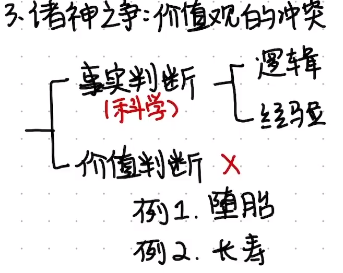 3.诸神之争:价值观的冲突
事实判断
(科学)
逻辑
经验
价值判断 X
例1.堕胎
例2.长寿